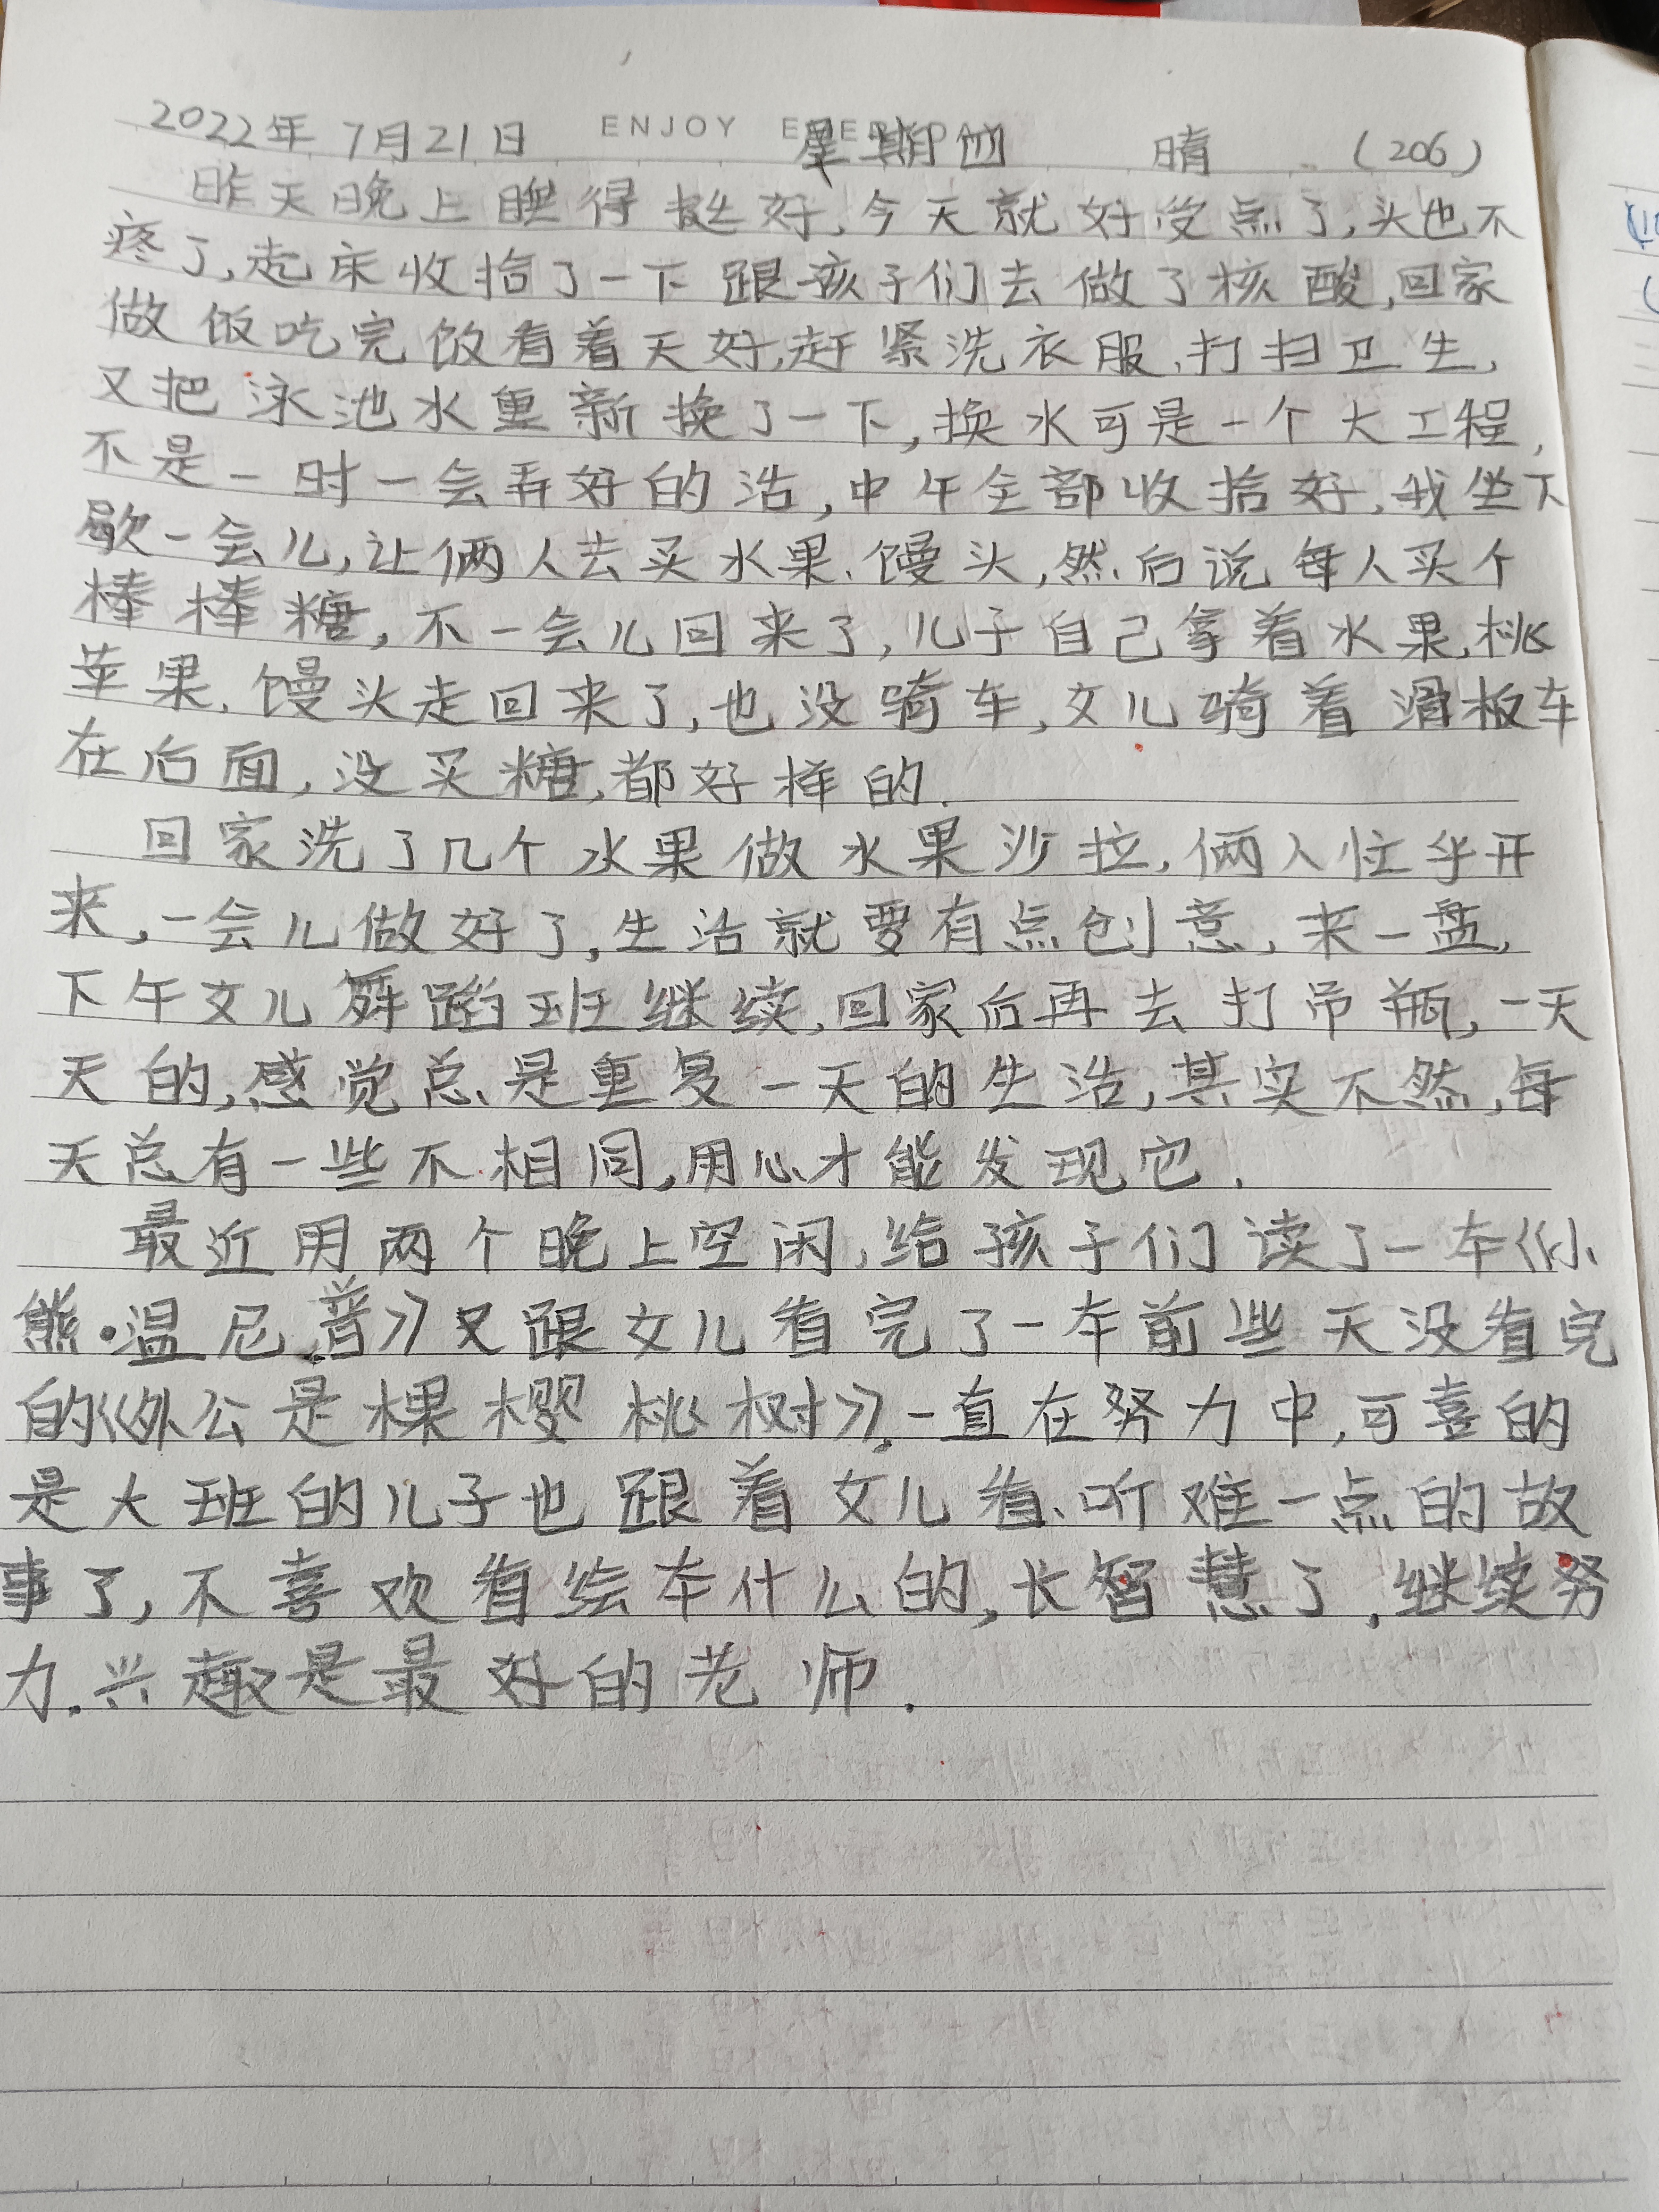 ENJOY EVERYDAY
2022年7月21日 星期四 晴 (206)
昨天晚上睡得挺好,今天就好受点了,头也不
疼了,起床收拾了一下跟孩子们去做了核酸,回家
做饭吃完饭看着天好,赶紧洗衣服、打扫卫生,
又把泳池水重新换了一下,换水可是一个大工程,
不是一时一会弄好的活,中午全部收拾好,我坐下
歇一会儿,让俩人去买水果、馒头,然后说每人买个
棒棒糖,不一会儿回来了,儿子自己拿着水果,桃
苹果、馒头走回来了,也没骑车,女儿骑着滑板车
在后面,没买糖,都好样的.
回家洗了几个水果做水果沙拉,俩人忙乎开
来,一会儿做好了,生活就要有点创意,来一盘,
下午女儿舞蹈班继续,回家后再去打吊瓶,一天
天的,感觉总是重复一天的生活,其实不然,每
天总有一些不相同,用心才能发现它.
最近用两个晚上空闲,给孩子们读了一本《小
熊·温尼普》又跟女儿看完了一本前些天没看完
的《外公是棵樱桃树》.一直在努力中,可喜的
是大班的儿子也跟着女儿看、听难一点的故
事了,不喜欢看绘本什么的,长智慧了,继续努
力.兴趣是最好的老师.